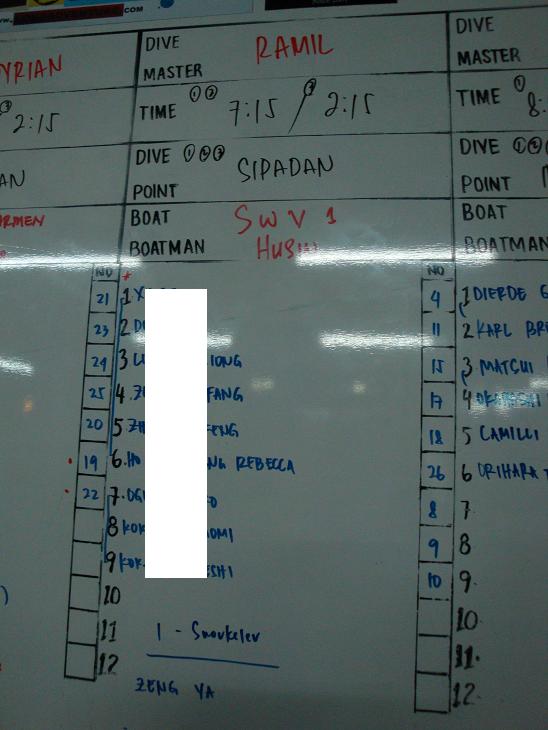 YRIAN
2:15
AN
RMEN
DIVE MASTER RAMIL
TIME ①② 7:15 / ③ 2:15
DIVE ①②③ POINT SIPADAN
BOAT SWV 1
BOATMAN HUSIN
NO
21 1
23 2
24 3 IONG
25 4 FANG
20 5 FENG
19 6. HO NG REBECCA
22 7. OGI O
8 KOK OMI
9 KOK ESHI
10
11
12
1 - Snorkeler
ZENG YA
DIVE
MASTER
TIME ① 8:
DIVE ①②
POINT
BOAT
BOATMAN
NO
4 1 DIERDE G
11 2 KARL BR
15 3 MATCUI
17 4
18 5 CAMILLI
26 6 ORIHARA
8 7
9 8
10 9.
10
11.
12.